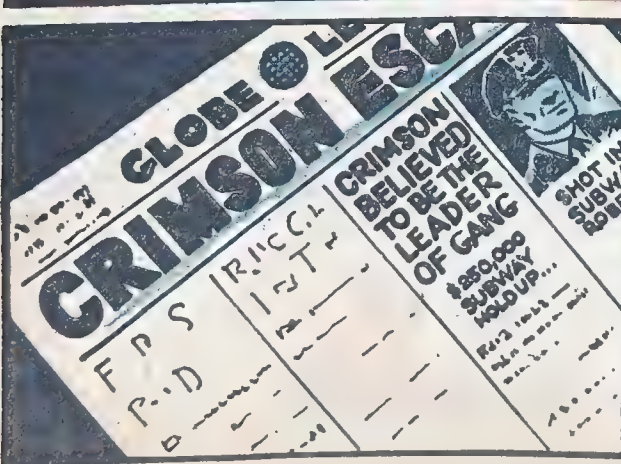 GLOBE LE
CRIMSON ESCA
CRIMSON
BELIEVED
TO BE THE
LEADER
OF GANG
$250,000
SUBWAY
HOLD UP...
SHOT IN
SUBWA
ROBB